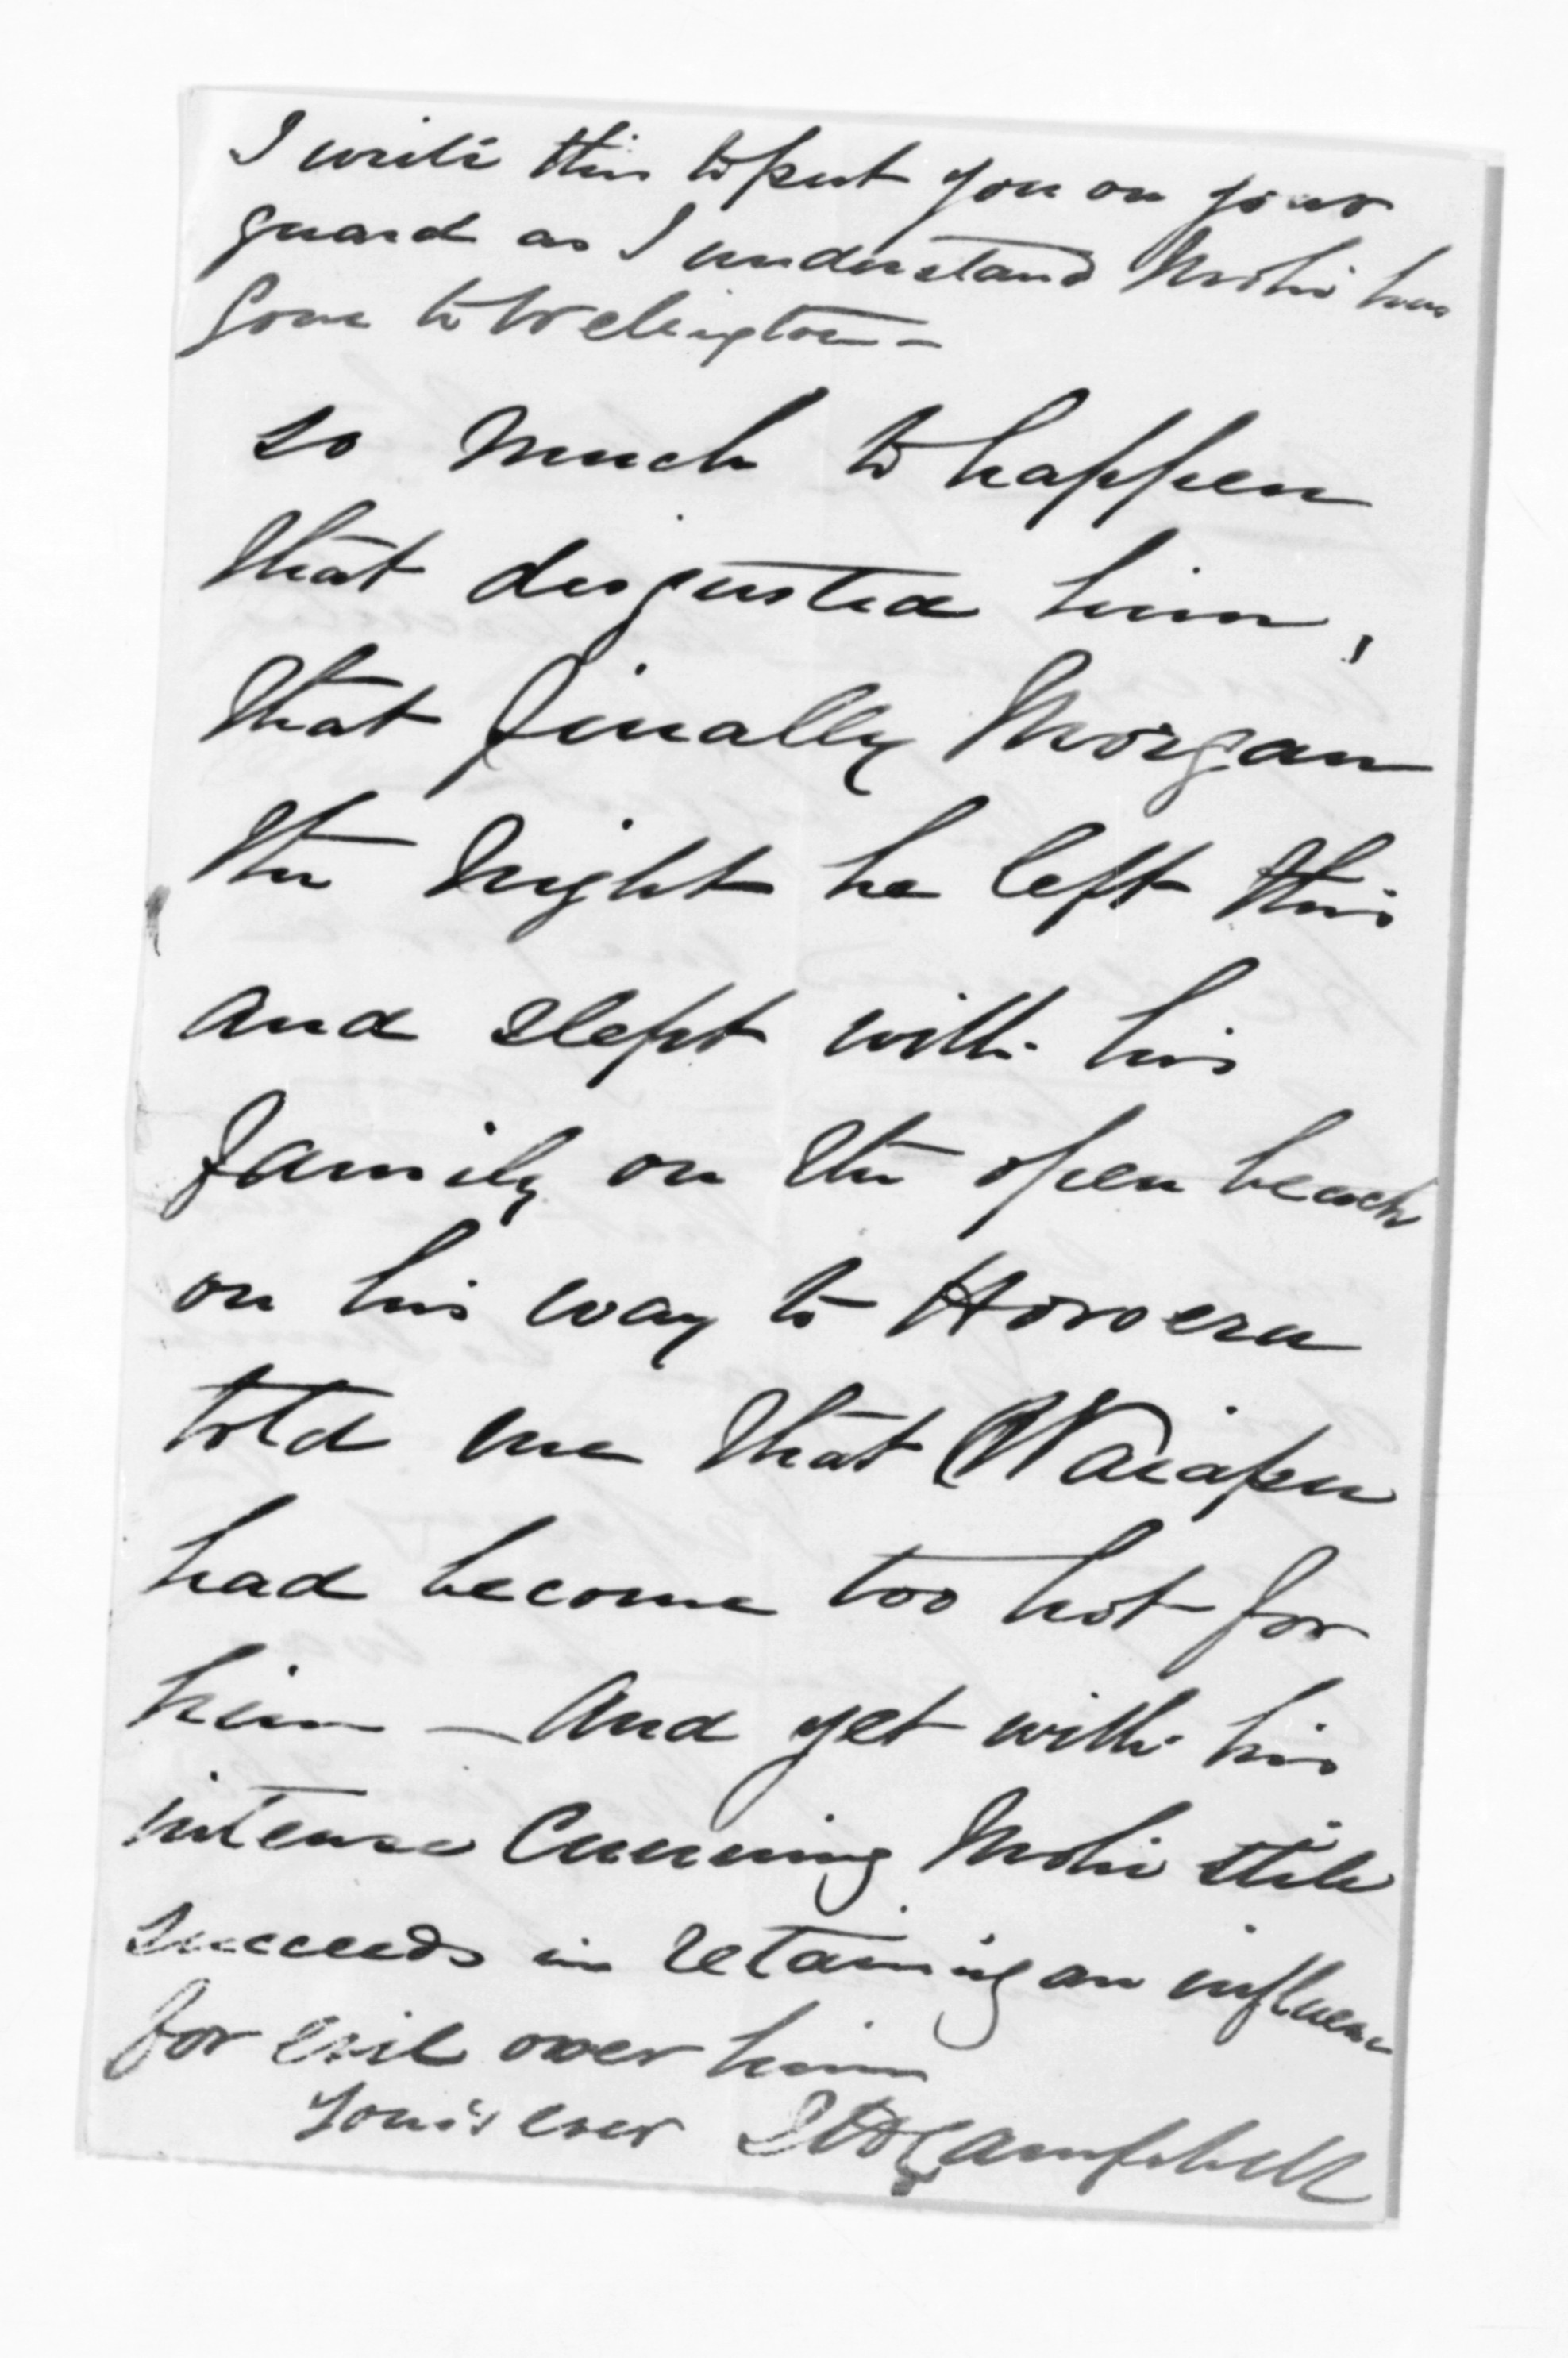 I write this to put you on your
guard as I understand Mohi has
gone to Wellington -
so much to happen
that disgusted him,
that finally Morgan
the night he left this
and slept with his
family on the open beach
on his way to Horoera
told me that Waiapu
had become too hot for
him - And yet with his
intense cunning Mohi still
succeeds in retaining an influence
for evil over him
Yours ever Campbell